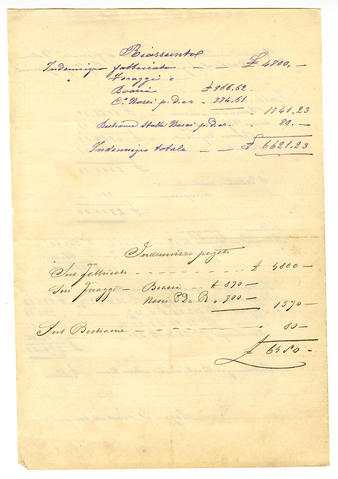 Riassunto
Indennizzo fabbricato £ 4800.-
" Foraggi
Boari £ 966.62
C. Nasci p.d.e. " 774.61
" 1741.23
Bestiame Stalla Nasci p.d.e. " 80.-
Indennizzo totale - £ 6621.23
Indennizzo pagati
Sui fabbricati - £ 4800 -
Sui Foraggi - Boari £ 870 -
Nasci P. De B. " 700 -
1570 -
Sul Bestiame 80 -
£ 6450 -